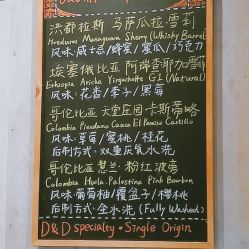 洪都拉斯 马萨瓜拉 雪利
Honduras Masaguara Sherry (Whisky Barrel)
风味:威士忌/蜂蜜/蜜瓜/巧克力
埃塞俄比亚 阿瑞查耶加雪菲
Ethiopia Aricha Yirgacheffe G1 (Natural)
风味:花香/李子/黑莓
哥伦比亚 天堂庄园 卡斯蒂略
Colombia Paraiso Cauca El Castillo
风味:草莓/蜜桃/桂花
后制方式:双重厌氧水洗
哥伦比亚 慧兰·粉红波旁
Colombia Huila. Palestina Pink Bourbon
风味:葡萄柚/覆盆子/樱桃
后制方式:全水洗 (Fully Washed)
D&D specialty • Single Origin